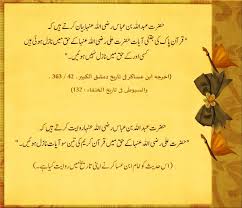 حضرت عبداللہ بن عباس رضی اللہ عنہما بیان کرتے ہیں کہ
"قرآن پاک کی جتنی آیات حضرت علی رضی اللہ عنہ کے حق میں نازل ہوئی ہیں
کسی اور کے حق میں نازل نہیں ہوئیں۔"
(اخرجہ ابن عساکر فی تاریخ دمشق الکبیر، 42 / 363،
والسیوطی فی تاریخ الخلفاء: 132)
حضرت عبداللہ بن عباس رضی اللہ عنہما روایت کرتے ہیں کہ
"حضرت علی رضی اللہ عنہ کے حق میں قرآن کریم کی تین سو آیات نازل ہوئیں۔"
(اس حدیث کو امام ابن عساکر نے اپنی تاریخ میں روایت کیا ہے۔)